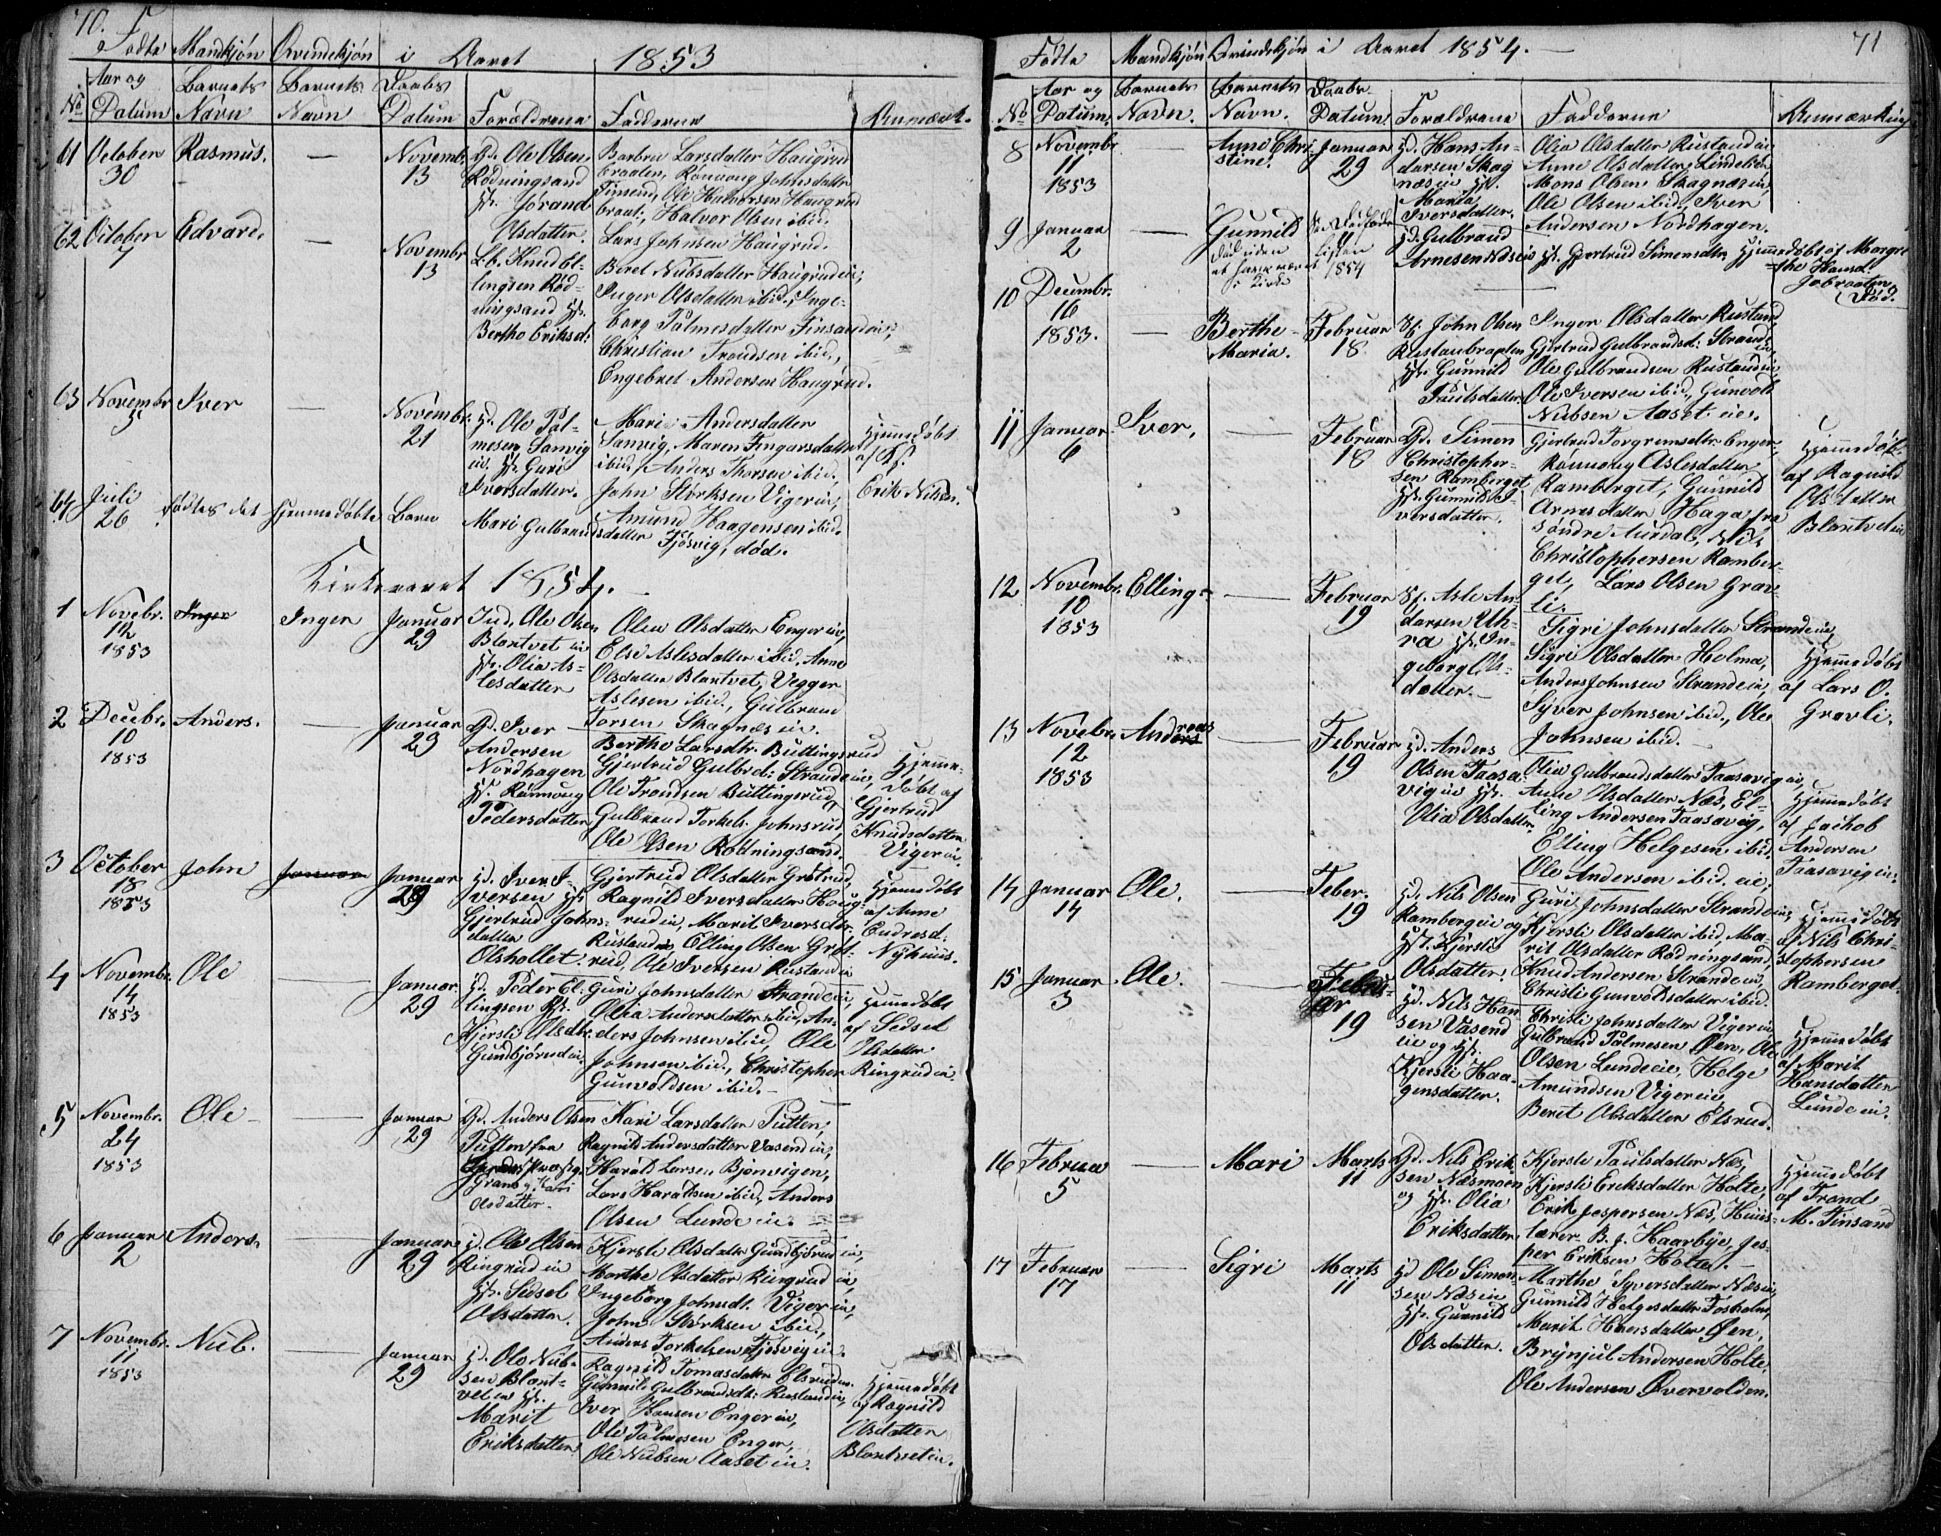 70.
Födte Mandkjøn Qvindekjøn i Aaret 1853
No Aar og Datum Barnets Navn Barnets Navn Daabs Datum Forældrene Fadderne Anmærk.
61 October 30 Rasmus. — Novembr. 13
Gd. Ole Olsen
Rodningsand
H. Jorand
Olsdatter.
Barbro Larsdatter Haugrud
braaten, Rönnoug Johnsdatter
Finsand, Ole Halvorsen Haugrud
braat:, Halvor Olsen ibid.
Lars Johnsen Haugrud.
62 October 7 Edvard. — Novembr. 13
Lb. Knud El-
lingsen Rod-
ningsand H.
Berthe Eriksd:
Beret Nubsdatter Haugrudeie;
Inger Olsdatter ibid., Inge-
borg Palmesdatter Finsandeie,
Christian Trondsen ibid.,
Engebret Andersen Haugrud.
63 Novembr. 5 Iver — Novembr. 21
Hd. Ole Pal-
mesen Sanvig
eie. H. Guri
Iversdatter.
Mari Andersdatter
Sanvig, Maren Fingarsdatter
ibid., Anders Thorsen ibid.
John Störksen Vigereie,
Amund Haagensen ibid.
Hjemmedøbt
af Kl.
Erik Nilsen.
64 Juli 26 födtes det hjemmedøbte Barn
Mari Gulbrandsdatter Fjösvig, död.
Kirkeaaret 1854.
1 Novebr. 12 1853 Inger Inger Januar 29
Ind. Ole Olsen
Blantvet eie
H. Olia As-
lesdatter
Olea Olsdatter Enger eie,
Else Aslesdatter ibid, Anne
Olsdatter Blantvet, Vegger
Aslesen ibid, Gulbrand
Torsen Skagnæs eie.
2 Decebr. 10 1853 Anders. — Januar 29
Gd. Iver
Andersen
Nordhagen
H. Rönnoug
Pedersdatter
Berthe Larsdtr. Buttingsrud
Gjertrud Gulbrd: Strande eie,
Ole Trondsen Buttingsrud,
Gulbrand Torkels. Johnsrud,
Ole Olsen Rodningsand.
Hjemme-
döbt af
Gjertrud
Knudsdatter
Viger eie.
3 October 18 1853 John Januar Januar 29
Hd. Iver I-
versen H.
Gjertrud Johns-
datter
Olshollet.
Gjertrud Olsdatter Grötrud,
Ragnild Iversdatter Haug-
rudeie, Marit Iversdtr.
Rustandeie, Elling Olsen Gröt-
rud, Ole Iversen Rustandeie
Hjemmedøbt
af Anne
Endresd:
Nyhuus.
4 Novembr. 14 1853 Ole — Januar 29
Hd. Peder El-
lingsen H.
Kjersti Olsdtr.
Gundbjörudeie
Guri Johnsdatter Strandeeie,
Olia Andersdatter ibid, An-
ders Johnsen ibid, Ole
Johnsen ibid., Christopher
Gunvoldsen ibid. —
Hjemmedøbt
af Sedsel
Olsdatter
Ringrudeie.
5 Novembr. 24 1853 Ole — Januar 29
Gd. Anders Olsen
Tutten fra
Grans Hovedsg.
Gran og Kari
Olsdatter.
Kari Larsdatter Tutten,
Ragnild Andersdatter Vasendeie,
Harald Larsen Björnvigen,
Lars Haraldsen ibid, Anders
Olsen Lunde eie.
6 Januar 2 Anders. — Januar 29
Hd. Ole Olsen
Ringrud eie
H. Sedsel
Olsdatter.
Kjersti Olsdatter Gundbjörudeie,
Marthe Olsdatter Ringrudeie,
Ingeborg Johnsdt. Vigereie,
John Störksen ibid,
Anders Torkelsen Fjösvigeie.
7 Novembr. 11 1853 Nub. — Januar 29
Hd. Ole Nub-
sen Blant-
vet eie H.
Marit
Eriksdatter
Ragnild Tomasdatter Elsrudeie.
Gunnild Gulbrandsdt: Rustandeie,
Iver Hansen Enger eie,
Ole Palmesen Enger,
Ole Nubsen Aaset eie.
Hjemmedøbt
af Ragnild
Olsdatter
Blantveteie.
71
Födte Mandkjøn Qvindekjøn i Aaret 1854. —
No Aar og Datum. Barnets Navn. Barnets Navn. Daabs- Datum Forældrene Fadderne Anmærkning
8 Novembr. 11 1853 — Anne Chri-
stine. Januar 29
Hd. Hans An-
dersen Skag
næs eie H.
Maria
Iversdatter.
Olia Olsdatter Rustand eie
Anne Olsdatter Lindelien
Mons Olsen Skagnæs eie
Ole Olsen ibid, Iver
Andersen Nordhagen.
9 Januar 2 Gunnild
död uden
at have været
i Kirke
Se Dödfödte
Listen
1854
Hd. Gulbrand
Arnesen Næseie H. Gjertrud Simensdtr
Hjemmedøbt af Margre-
the Hansd.
Jobraaten
(Död.
10 Decembr. 16 1853. — Berthe
Maria. Februar 18
Sf. John Olsen
Rustanbraaten
H. Gunnild
Paulsdatter.
Inger Olsdatter Rustand,
Gjertrud Gulbrandsd: Strandeie
Ole Gulbrandsen Rustandeie
Ole Iversen ibid., Gunvold
Nubsen Aaset eie.
11 Januar 6 Iver. — Februar 18
Gd. Simen
Christopher-
sen Ramberget
H. Gunnild I-
versdatter.
Gjertrud Torgrimsdtr. Enger,
Rönnoug Aslesdatter
Ramberget, Gunnild
Arnesdatter Haga fra
Söndre Aurdal, Nils
Christophersen Ramber-
get, Lars Olsen Grav-
li.
Hjemmedøb-
af Ragnild
Olsdatter
Blantveteie
12 Novembr. 10 1853 Elling — Februar 19
Sf. Asle An-
dersen Uh-
ra H. In-
geborg Ols-
datter. —
Sigri Johnsdatter Strandeeie,
Sigri Olsdatter Holma,
Anders Johnsen Strandeeie,
Syver Johnsen ibid., Ole
Johnsen ibid.
Hjemmedøbt
af Lars O.
Gravli.
13 Novebr. 12 1853 Andreas — Februar 19
Hd. Anders
Olsen Taasa-
vig eie H.
Olia Olsdatter.
Olia Gulbrandsdatter Taasavigeie,
Anne Olsdatter Næs, El-
ling Andersen Taasavig,
Elling Helgesen ibid.
Ole Andersen ibid. eie,
Hjemmedøbt
af Jachob
Andersen
Taasavigeie.
14 Januar 14 Ole. — Feber. 19
Hd. Nils Olsen
Rambergeie og
H. Kjersti
Olsdatter.
Guri Johnsdatter Strandeeie,
Kjersti Olsdatter ibid, Ma-
rit Olsdatter Rodningsand,
Knud Andersen Strandeeie,
Christi Gunvoldsdatter ibid.
Hjemmedøbt
af Nils Chri-
stophersen
Ramberget.
15 Januar 3 Ole. — Febru-
ar 19
Hd. Nils Han-
sen Vasend
eie og H.
Kjersti Haa-
gensdatter.
Christi Johnsdatter Vigereie
Gulbrand Palmesen Öen, Ole
Olsen Lundeeie, Helge
Amundsen Vigereie
Beret Olsdatter Elsrud.
Hjemmedøbt
af Marit
Hansdatter
Lunde eie.
16 Februar 5 — Mari Marts 11
Gd. Nils Erik-
sen Næsmoen
og H. Olia
Eriksdatter
Kjersti Paulsdatter Næs,
Kjersti Eriksdatter Holte,
Erik Jespersen Næs, Huus-
lærer B. J. Haarbye, Jes-
per Eriksen Holte. —
Hjemmedøbt
af Trond
M. Finsand
17 Februar 17 — Sigri Marts 11
Hd Ole Simon
sen Næseie
H. Gunnild
Olsdatter.
Marthe Syversdatter Næseie,
Gunnild Helgesdatter Fosholm,
Marit Hansdatter Öen,
Brynjul Andersen Holte,
Ole Andersen Övervolden.